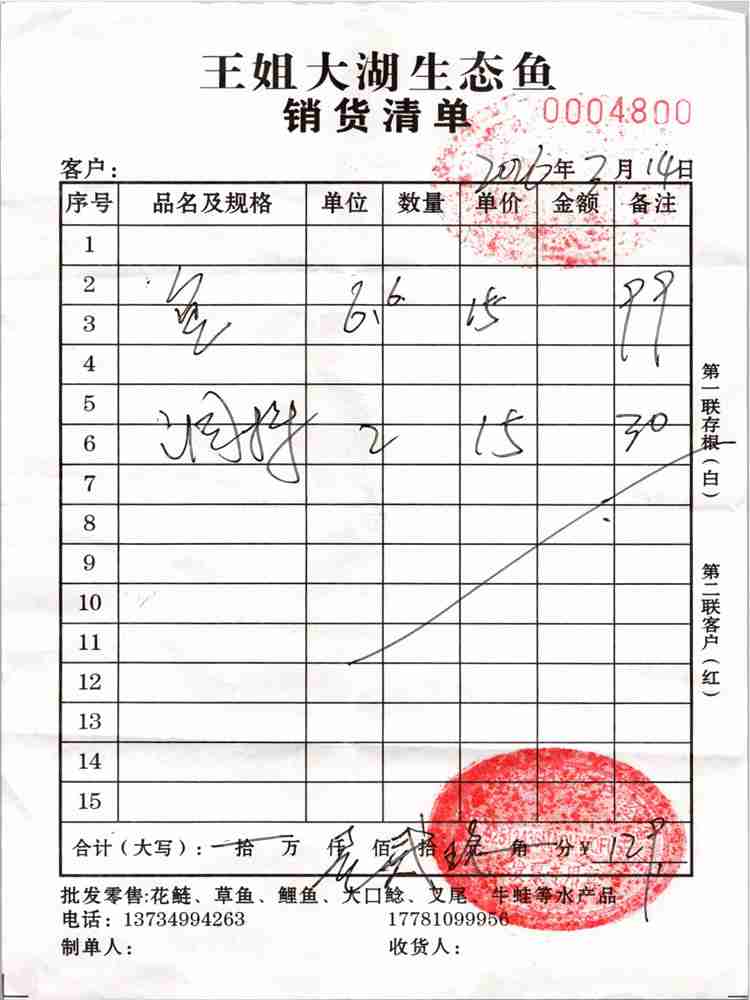 王姐大湖生态鱼
销货清单
0004800
客户： 2026年2月14日
序号 品名及规格 单位 数量 单价 金额 备注
1
2
鱼 6.6 15 99
3
4
5
2 15 30
6
7
8
9
10
11
12
13
14
15
合计（大写）： 拾 万 仟 壹 佰 贰 拾 玖 角 分 ￥ 129
批发零售:花鲢、草鱼、鲤鱼、大口鲶、叉尾、牛蛙等水产品
电话：13734994263 17781099956
制单人： 收货人：
第一联存根（白）
第二联客户（红）